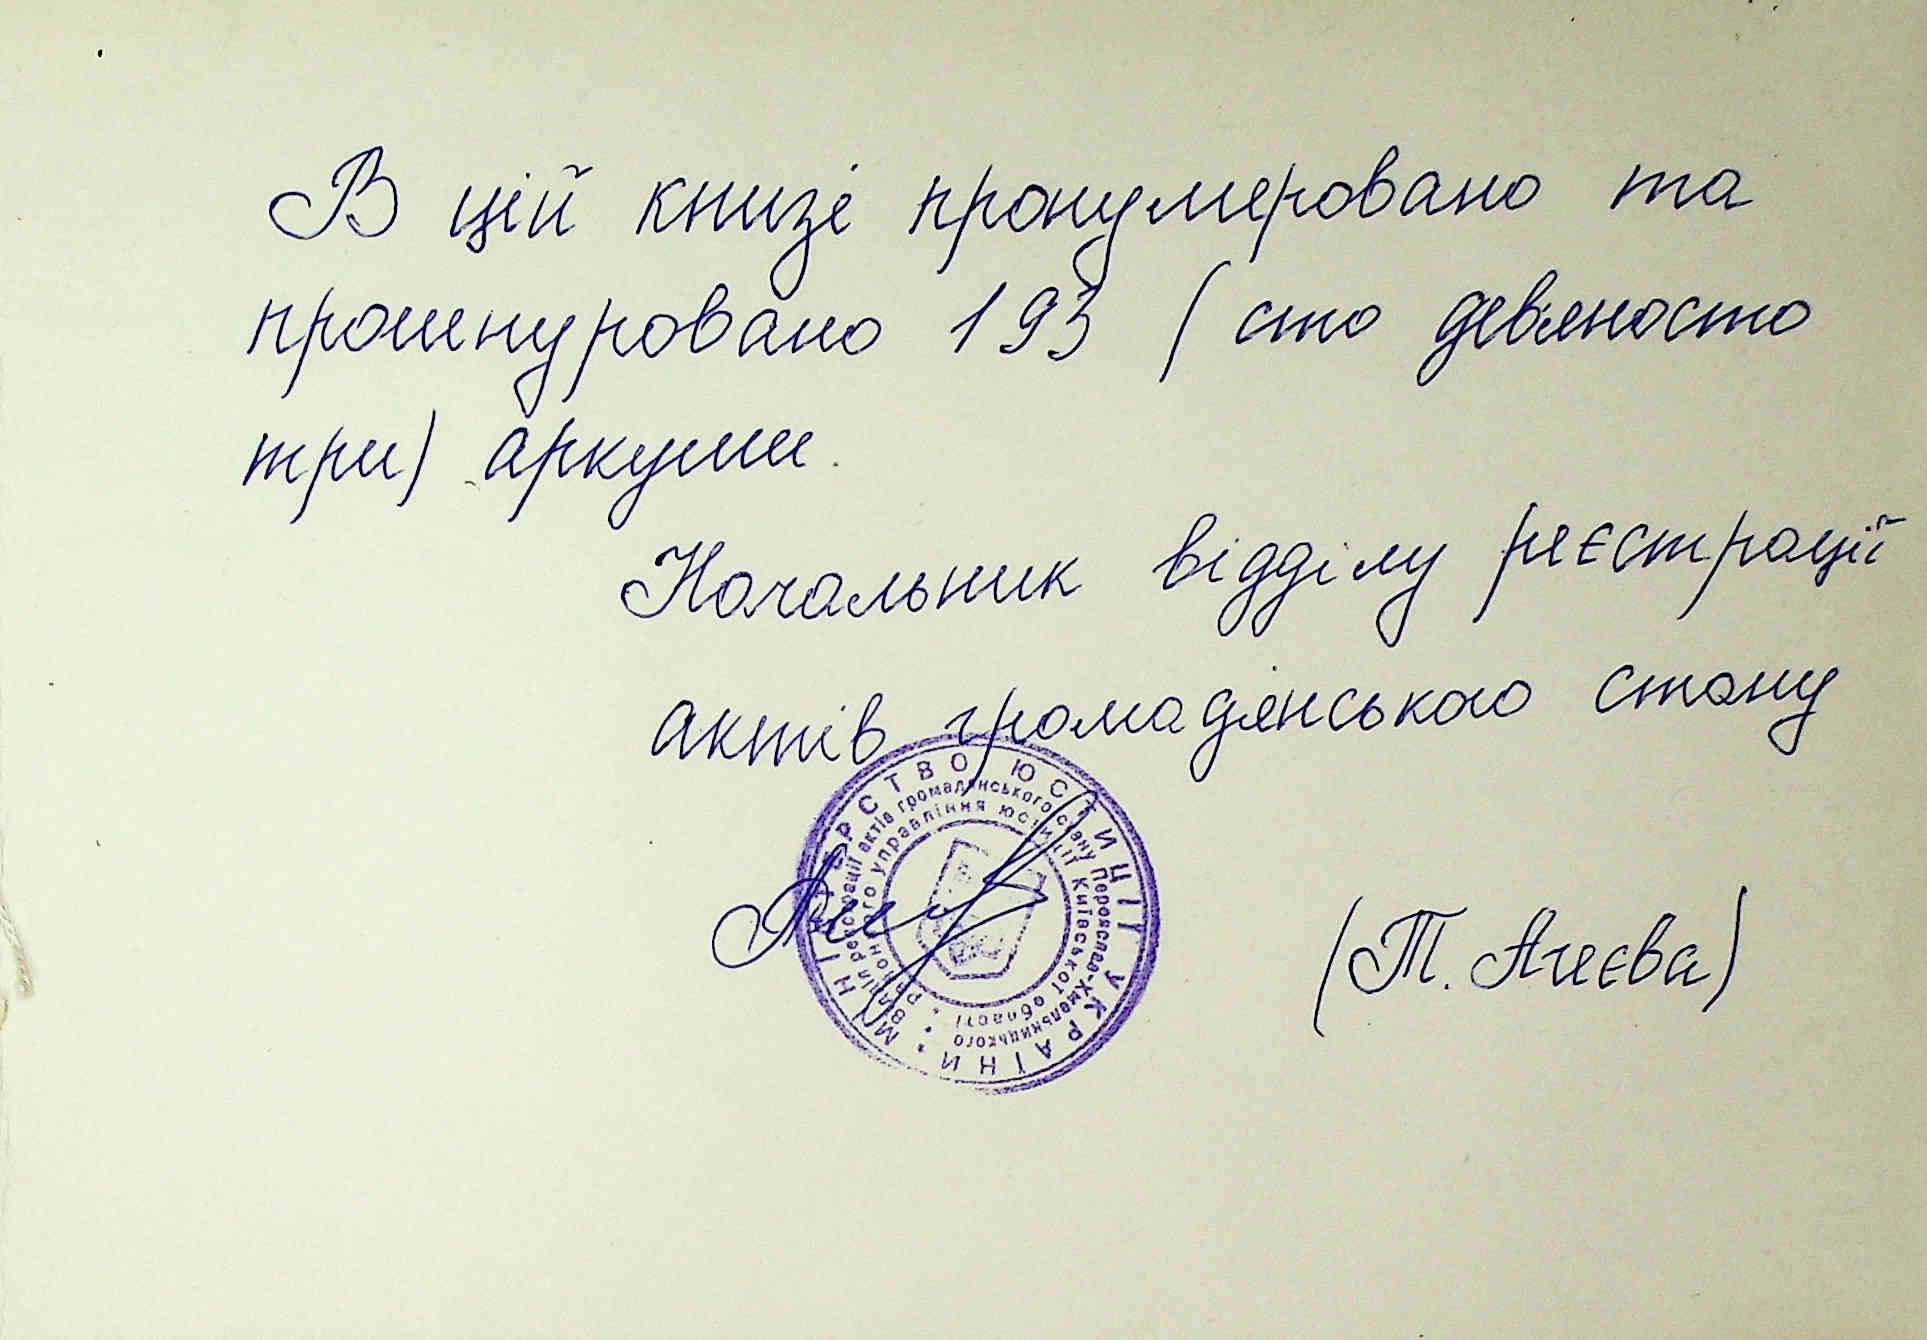 В цій книзі пронумеровано та
прошнуровано 193 (сто девяносто
три) аркуши.
Начальник відділу реєстрації
актів громадянського стану
МІНІСТЕРСТВО ЮСТИЦІЇ УКРАЇНИ
Відділ реєстрації актів громадянського стану Переяслав-Хмельницького
районного управління юстиції Київської області
(Т. Агеєва)